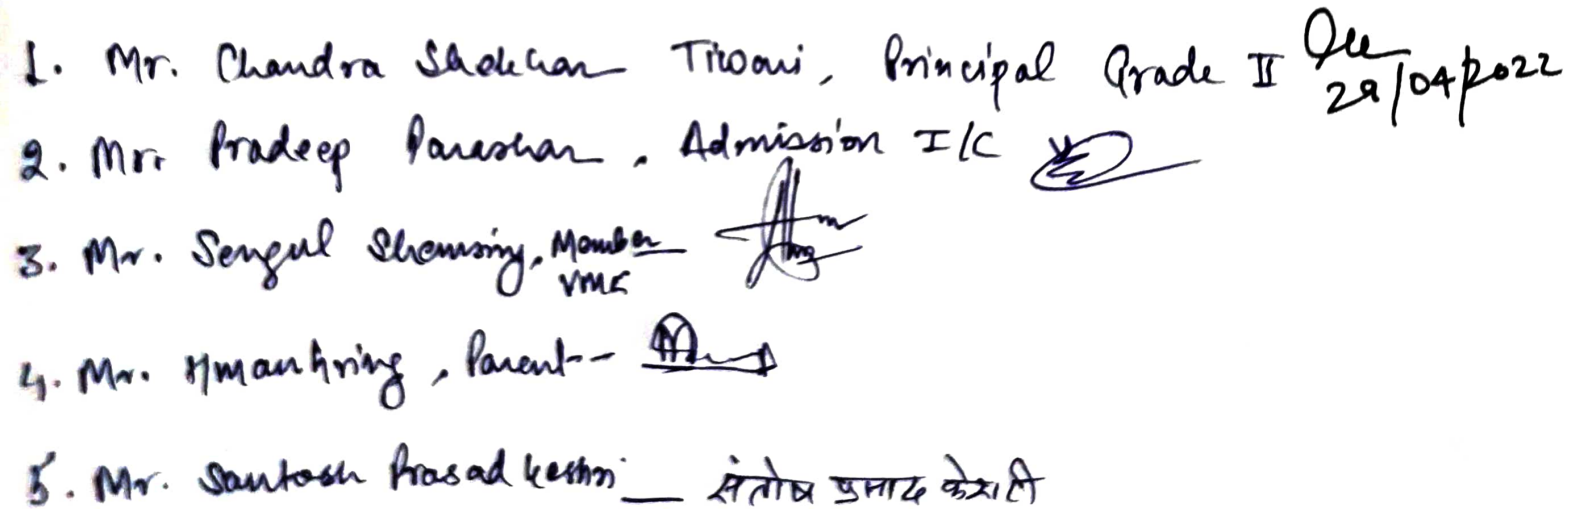 1. Mr. Chandra Shekhar Tiwari, Principal Grade II 29/04/2022
2. Mr. Pradeep Parashar, Admission I/C
3. Mr. Sengul Shemsing, Member
VMC
4. Mr. Hmanhring, Parent--
5. Mr. Santosh Prasad Keshri — संतोष प्रसाद केशरी